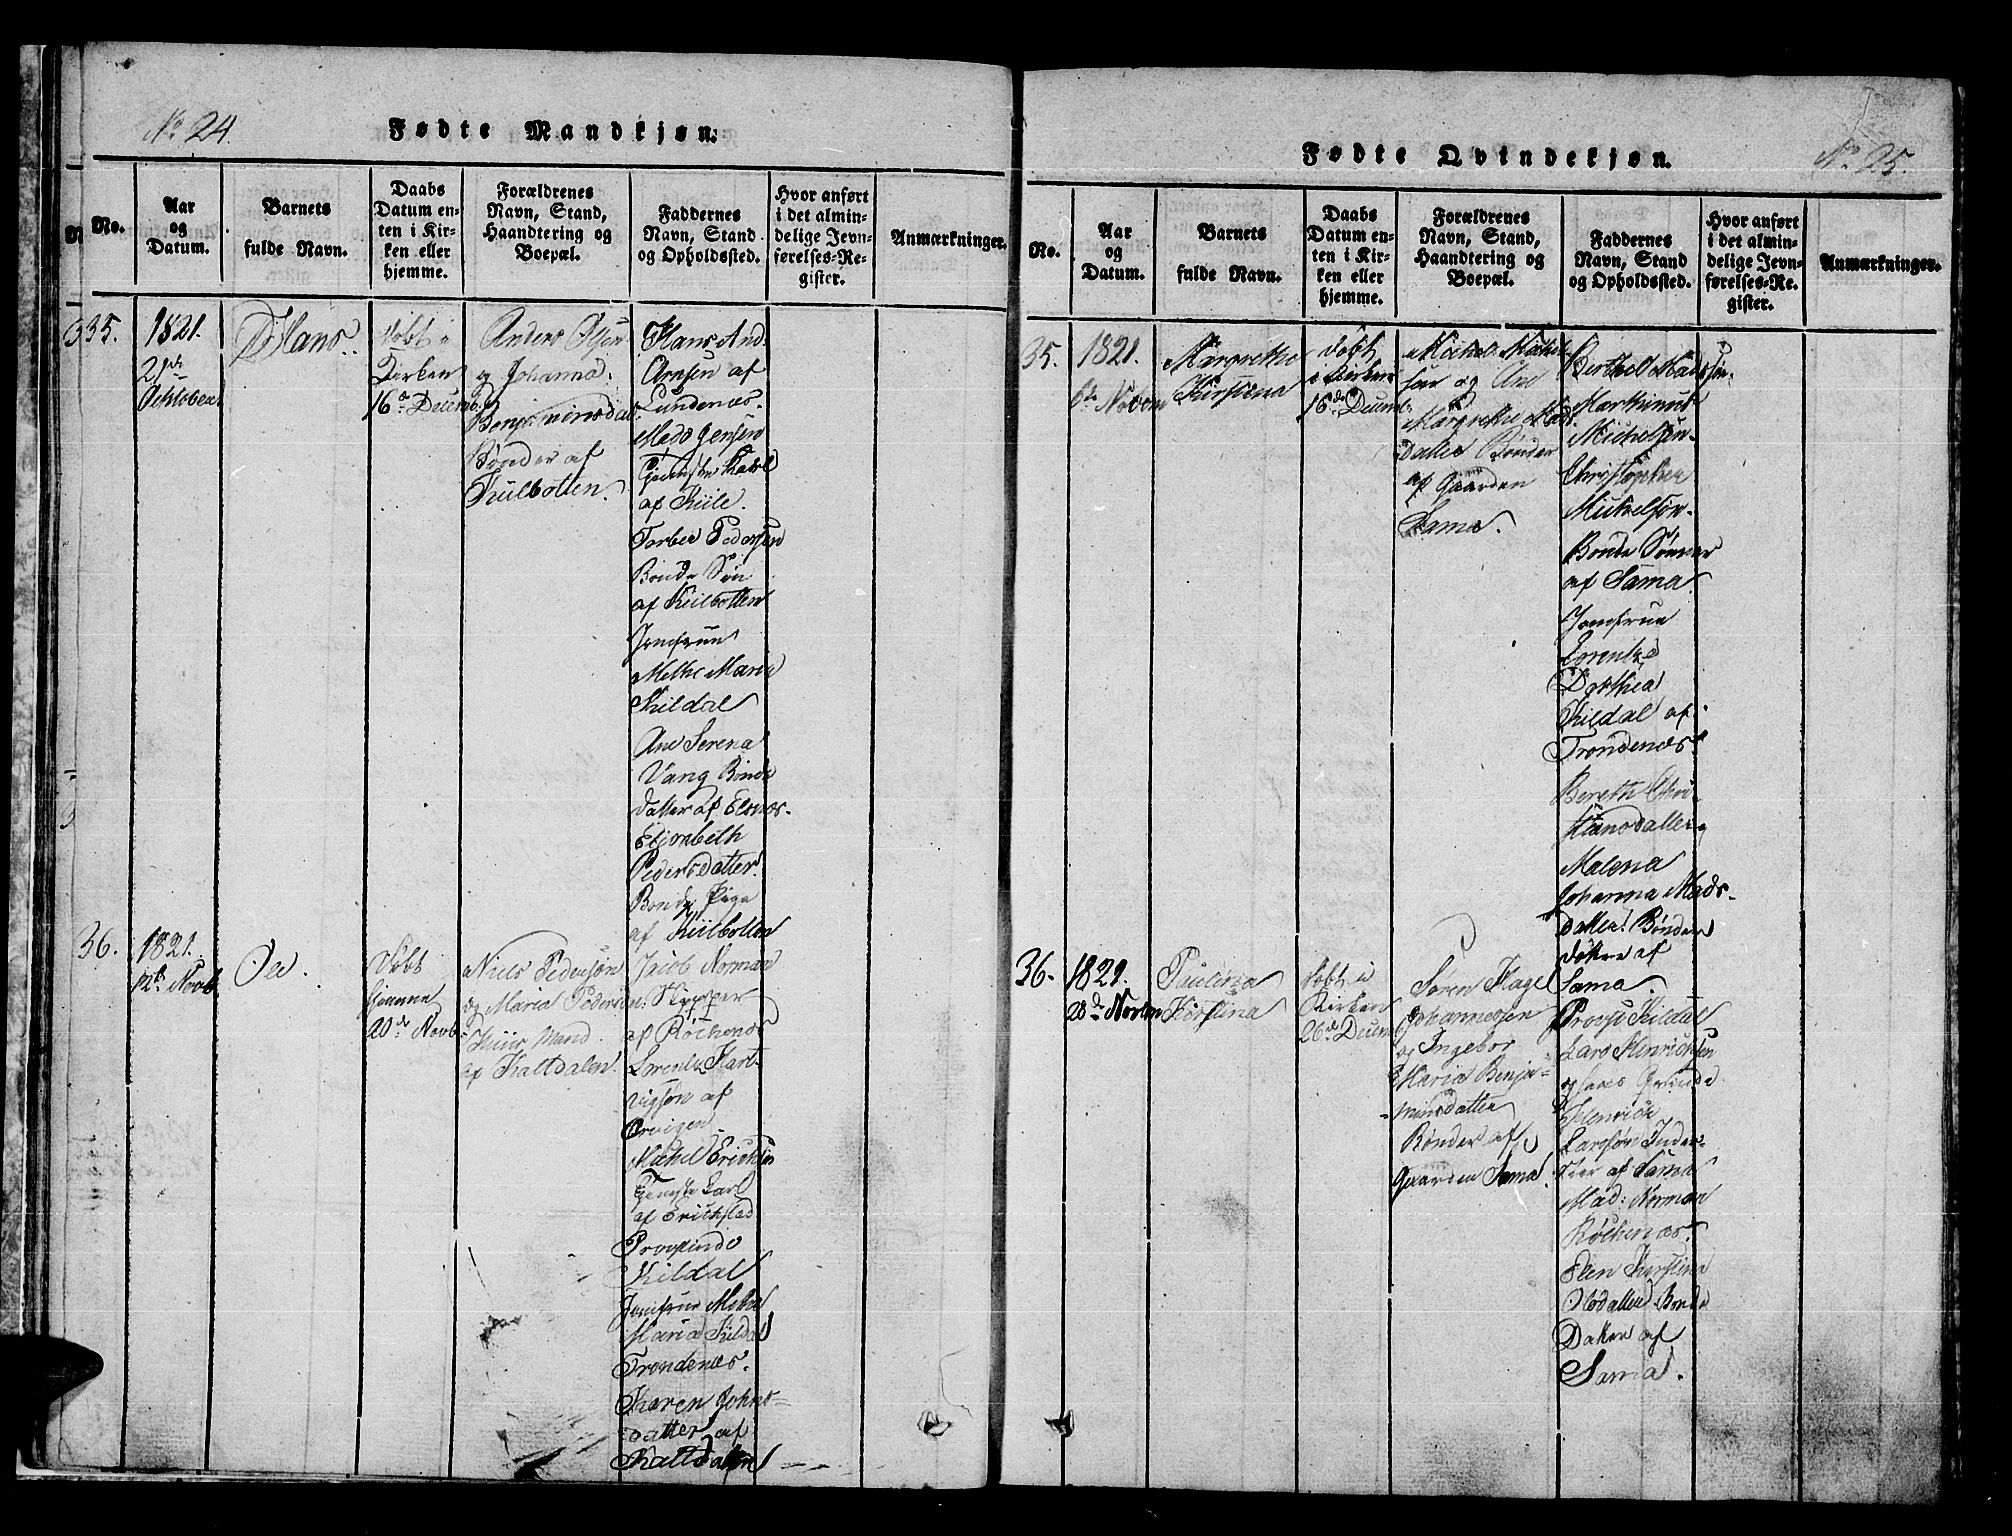 No 24.
Fødte Mandkjøn.
No.
Aar
og
Datum.
Barnets
fulde Navn.
Daabs
Datum en-
ten i Kir-
ken eller
hjemme.
Forældrenes
Navn, Stand,
Haandtering og
Boepæl.
Faddernes
Navn, Stand
og Opholdssted.
Hvor anført
i det almin-
delige Jevn-
førelses-Re-
gister.
Anmærkninger.
35.
1821.
2de
Hans.
Døbt i
Kirken
16de Decemb.
Anders
og Johanna
Benjaminsdat.
Bønder af
Kiilbotten.
Hans And.
Arnsen af
Lundenæs.
Mads Jensen
Tjeneste Karl
af Kiile.
Torber Pedersen
Bonde Søn
af Kiilbotten
Jomfrue
Methe Maria
Kildal
Ane Serena
Vang Bonde
datter af Elsnæs.
Elisabeth
Pedersdatter
Bonde Pige
af Kiilbotten
36.
1821.
12te Novb.
Ole.
Døbt
hjemme
20de Novb.
Niels Pedersøn
og Maria Peders
Mand
af Kaltdalen.
Jacob Norman
Skipper
af Røkenæs
Lorentz Hart-
vigsøn af
Michel Erichsen
Tjeneste Karl
af Erichstad
Provstinde
Kildal
Jomfrue Methe
Maria Kildal
Trondenæs.
Karen Johns-
datter af
Kaltdalen
No 25.
Fødte Qvindekjøn.
No.
Aar
og
Datum.
Barnets
fulde Navn.
Daabs
Datum en-
ten i Kir-
ken eller
hjemme.
Forældrenes
Navn, Stand,
Haandtering og
Boepæl.
Faddernes
Navn, Stand
og Opholdssted.
Hvor anført
i det almin-
delige Jevn-
førelses-Re-
gister.
Anmærkninger.
35.
1821.
6te Novem
Margrethe
Kirstina
døbt
i Kirken
16de Decemb.
Michel Michel-
søn og Ane
Margrethe Mads-
datter Bønder
af Gaarden
Sama.
Berthel Madsøn.
Marthinus
Michelsøn.
Christopher
Michelsøn.
Bonde Sønner
af Sama
Jomfrue
Lorentze
Dorthea
Kildal af
Trondenæs
Bereth Chri-
stiansdatter
Malena
Johanna Mads-
datter. Bønder
døttre af
Sama.
36.
1821.
28de Novem
Paulina
Kirstina
døbt i
Kirken
26de Decem
Søren Hagel
Johannesen
og Ingebor
Maria Benja-
minsdatter
Bønder af
Gaarden Sama.
Provst Kildal
Lars Henrichsen
og hans Qvinde
Henrich
Larsøn Inder-
ster af Sama
Mad: Norman
Røkenæs.
Elen Kirstina
Olsdatter Bonde
Datter af
Sama.